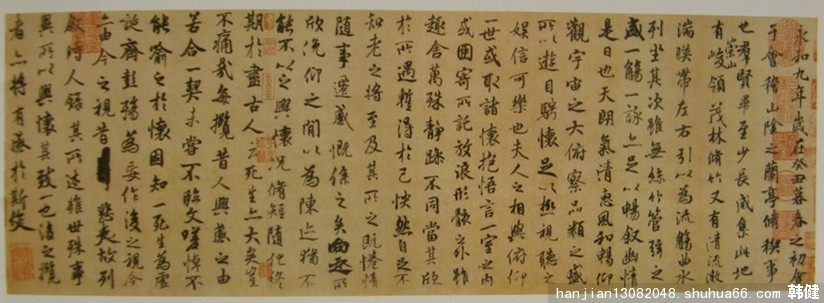 永和九年歲在癸丑暮春之初會
于會稽山陰之蘭亭脩稧事
也羣賢畢至少長咸集此地
有崇山峻領茂林脩竹又有清流激
湍暎帶左右引以為流觴曲水
列坐其次雖無絲竹管弦之
盛一觴一詠亦足以暢叙幽情
是日也天朗氣清惠風和暢仰
觀宇宙之大俯察品類之盛
所以遊目騁懷足以極視聽之
娛信可樂也夫人之相與俯仰
一世或取諸懷抱悟言一室之內
或因寄所託放浪形骸之外雖
趣舍萬殊靜躁不同當其欣
於所遇蹔得於己快然自足不
知老之將至及其所之既惓情
隨事遷感慨係之矣向之所
欣俛仰之間以為陳迹猶不
能不以之興懷況脩短隨化終
期於盡古人云死生亦大矣豈
不痛哉每攬昔人興感之由
若合一契未嘗不臨文嗟悼不
能喻之於懷固知一死生為虛
誕齊彭殤為妄作後之視今
亦由今之視昔悲夫故列
敘時人錄其所述雖世殊事
異所以興懷其致一也後之攬
者亦將有感於斯文
hanjian13082048.shuhua66.com 韩健